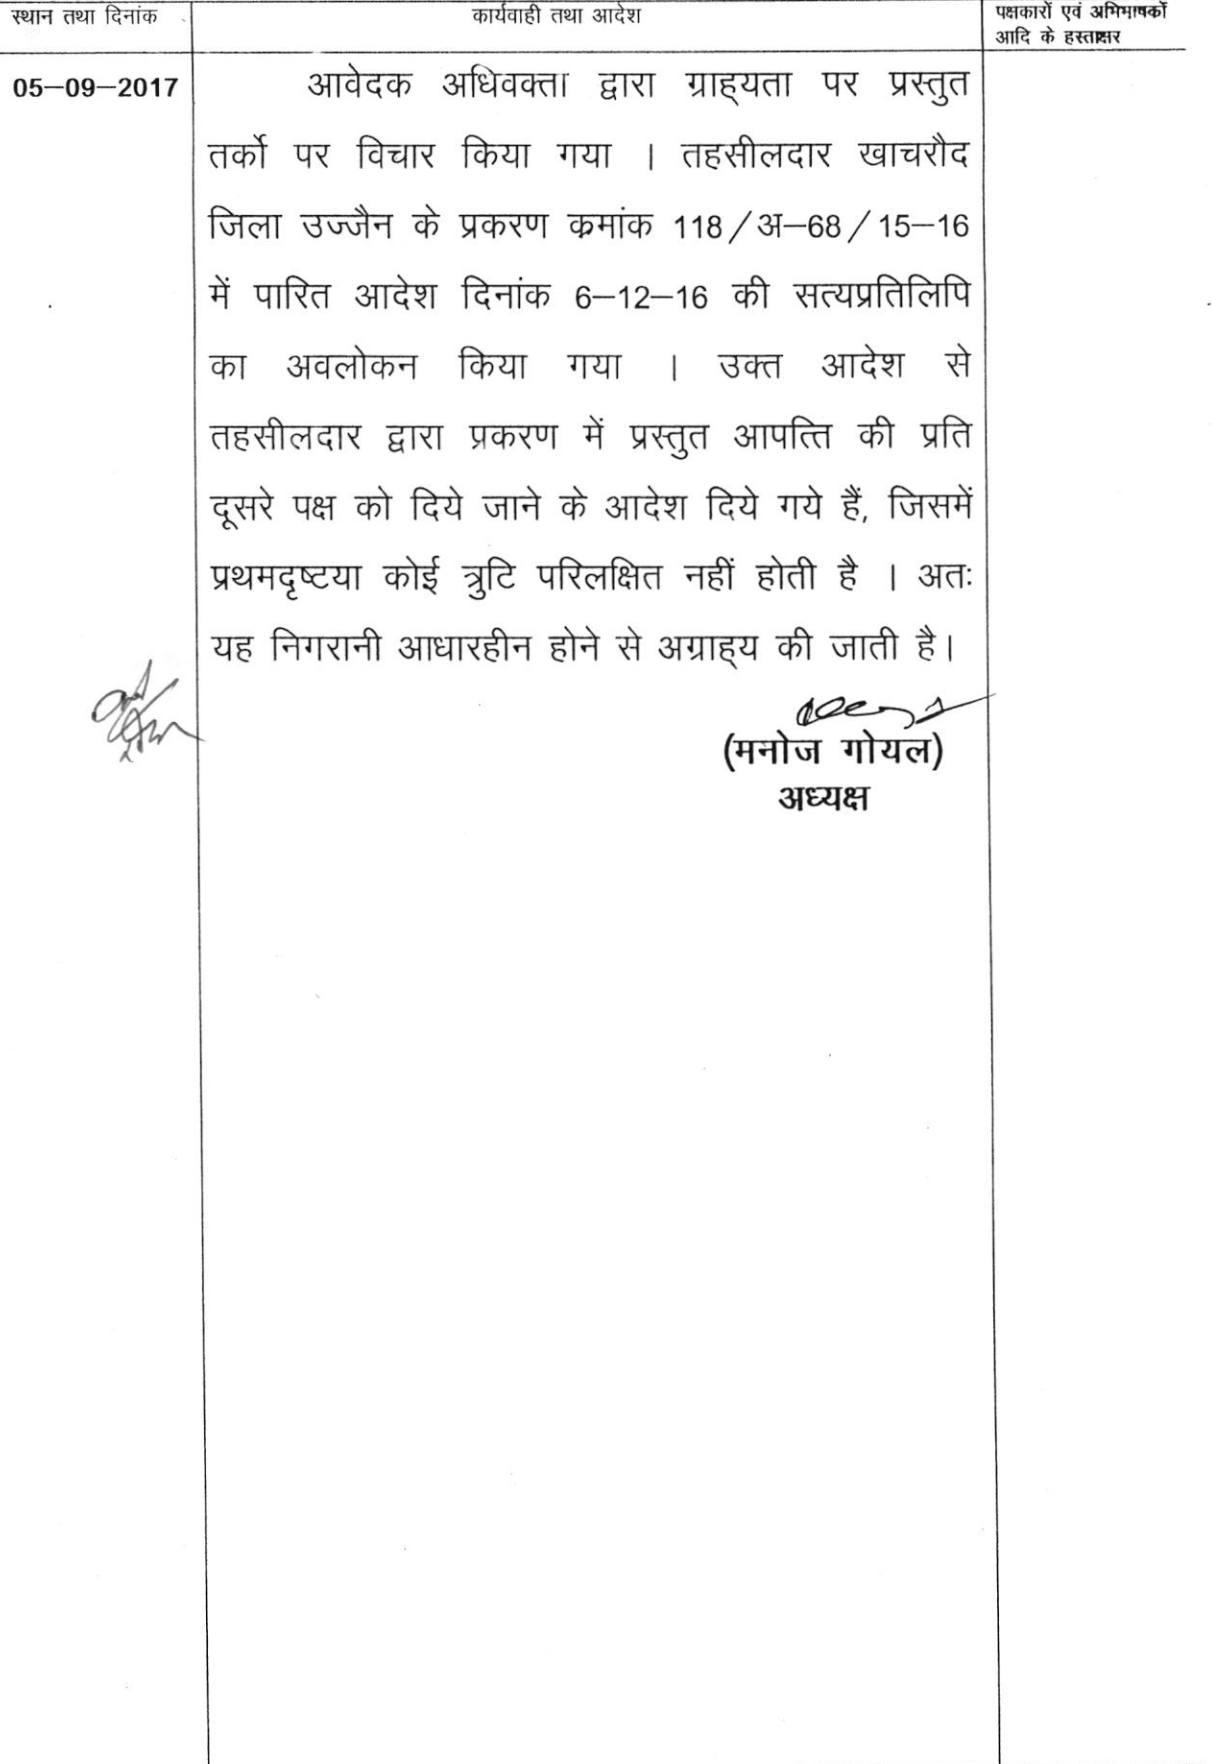 स्थान तथा दिनांक
कार्यवाही तथा आदेश
पक्षकारों एवं अभिभाषकों
आदि के हस्ताक्षर
05–09–2017
आवेदक अधिवक्ता द्वारा ग्राह्यता पर प्रस्तुत
तर्को पर विचार किया गया । तहसीलदार खाचरौद
जिला उज्जैन के प्रकरण कमांक 118/अ–68/15–16
में पारित आदेश दिनांक 6–12–16 की सत्यप्रतिलिपि
का अवलोकन किया गया । उक्त आदेश से
तहसीलदार द्वारा प्रकरण में प्रस्तुत आपत्ति की प्रति
दूसरे पक्ष को दिये जाने के आदेश दिये गये हैं, जिसमें
प्रथमदृष्टया कोई त्रुटि परिलक्षित नहीं होती है । अतः
यह निगरानी आधारहीन होने से अग्राह्य की जाती है।
(मनोज गोयल)
अध्यक्ष